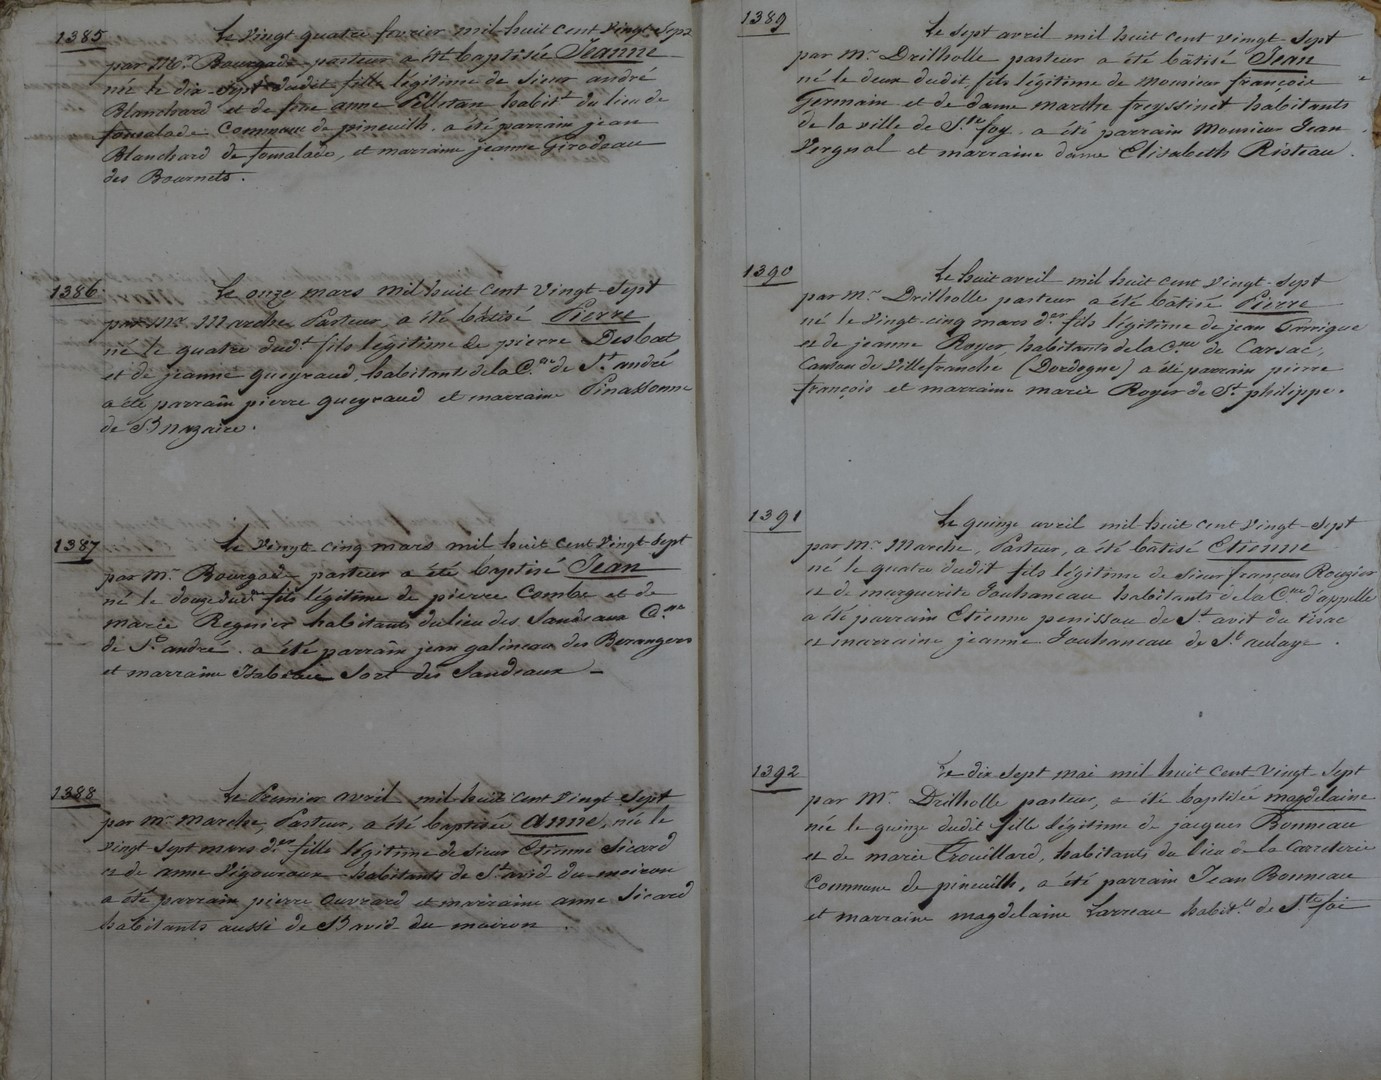 1385
Le vingt quatre fevrier mil huit cent vingt-sept
par Mr. Bourgade pasteur a été baptisée Jeanne
née le dix-sept dudit fille légitime de Sieur andré
Blanchard et de fine anne Pelletan habitt. du lieu de
fomalade Commune de pineuilh. a été parrain jean
Blanchard de fomalade, et marraine jeanne Girodeau
des Bournets.
1386
Le onze mars mil huit cent vingt-sept
par Mr. Marche, Pasteur, a été bâtisé Pierre
né le quatre dudt. fils légitime de pierre Desbat
et de jeanne queyraud, habitant de la Cne. de St. andré
a été parrain pierre queyraud et marraine Pinassonne
de St nazaire.
1387
Le vingt-cinq mars mil huit cent vingt-sept
par Mr. Bourgade pasteur a été baptisé Jean
né le douze dud. fils légitime de pierre Combe et de
marie Regnier habitants du lieu des Sandeaux Cne.
de St. andré. a été parrain jean galineau des Berangers
et marraine Isabeau Sort des Sandeaux -
1388
Le Premier avril mil huit cent vingt-sept
par mr. marche, Pasteur, a été baptisée anne, née le
vingt sept mars der. fille légitime de Sieur Etienne Sicard
et de anne Vigouroux habitants de St. avid du moiron
a été parrain pierre Ouvrard et marraine anne Sicard
habitants aussi de St avid du moiron.
1389
Le sept avril mil huit cent vingt-sept
par mr. Drilholle pasteur a été bâtisé Jean
né le deux dudit fils légitime de monsieur françois
Germain et de dame marthe freyssinet habitants
de la ville de Ste foy. a été parrain Monsieur Jean
Vergnol et marraine dame Elisabeth Risteau.
1390
Le huit avril mil huit cent vingt-sept
par mr. Drilholle pasteur a été bâtisé Pierre
né le vingt-cinq mars der. fils légitime de jean Garrigue
et de jeanne Royer, habitants de la Cne. de Carsac,
Canton de Villefranche (Dordogne) a été parrain pierre
françois et marraine marie Royer de St. philippe.
1391
Le quinze avril mil huit cent vingt-sept
par mr. Marche, Pasteur, a été bâtisé Etienne
né le quatre dudit fils légitime de Sieur françois Rougier
et de marguerite Jouhaneau habitants de la Cne. d'appelle
a été parrain Etienne penissou de St. avit du tirac
et marraine jeanne Jouhaneau de St. aulaye.
1392
Le dix sept mai mil huit cent vingt-sept
par Mr. Drilholle pasteur, a été baptisée magdelaine
née le quinze dudit fille légitime de jacques Bonneau
et de marie Trouillard, habitants du lieu de la Carreterie
Commune de pineuilh, a été parrain Jean Bonneau
et marraine magdelaine Larreau habit.ts de Ste foi